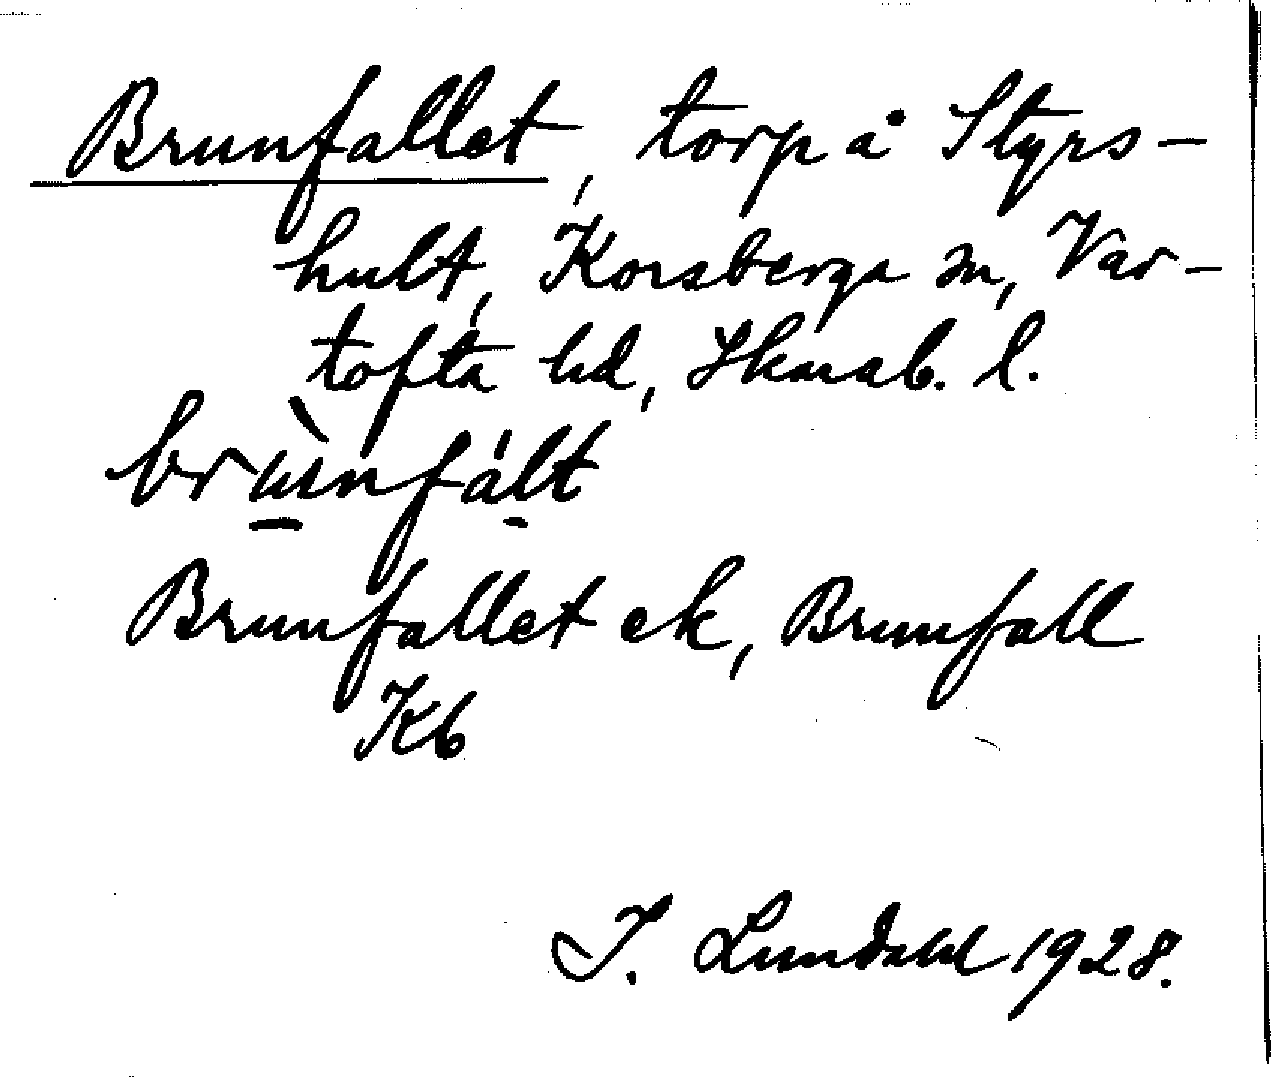 Brunfallet, torp å Styrs-
hult, Korsberga sn, Var-
tofta hd, Skarab. l.
brùnfált
Brunfallet ek, Brunfall
Kb
I. Lundahl 1928.